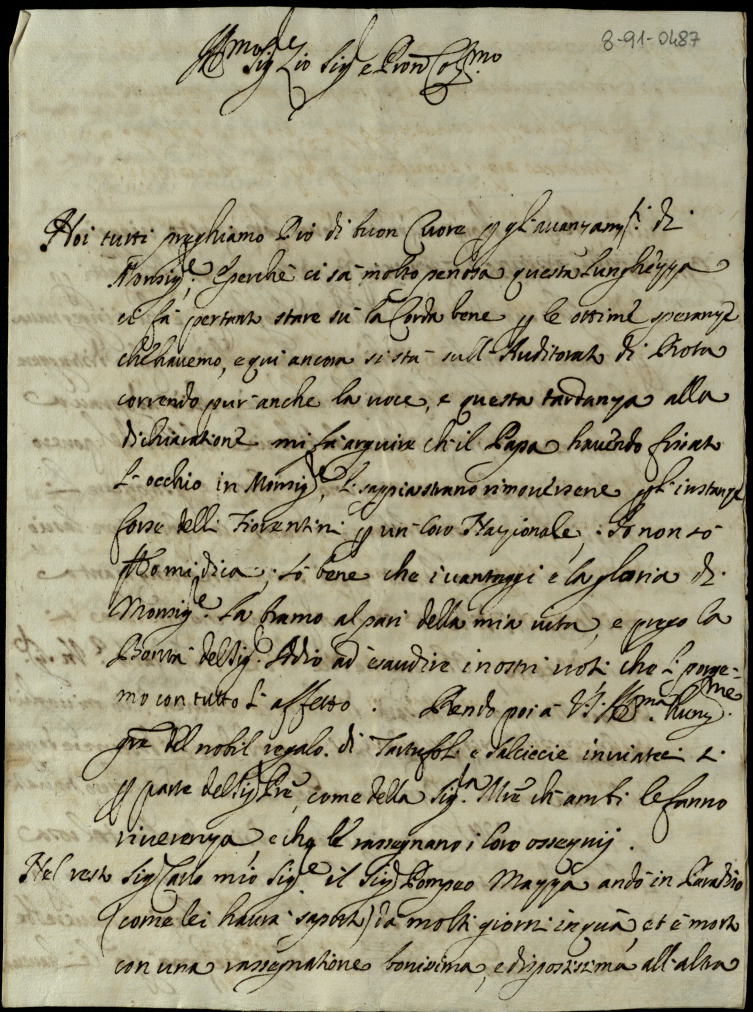 8-91-0487
Ill.mo Sig.e Zio Sig.e e Pron Col.mo
Noi tutti preghiamo Dio di buon Cuore p gl'avanzam.ti di
Monsig.e, e perche ci sa molto penosa questa lunghezza
ci fà pertanto stare sù la Corda bene p le ottime speranze
che havemo, e qui ancora si stà sull'Auditorato di Rota
correndo pur anche la voce, e questa tardanza alla
dichiaratione mi fà arguire ch'il Papa havendo fissato
l'occhio in Monsig.e, l. rimoversene p gl'instanze
forse delli Fiorentini p un loro Nazionale, Io non so
mi dica, sò bene che i vantaggi e la gloria di
Monsig.e la bramo al pari della mia vita, e prego la
Bontà del Sig.e Iddio ad esaudire i nostri voti che l. porge-
mo con tutto l'affetto. Rendo poi à V.S. Ill.ma
gre del nobil regalo di Tartufoli e salciccie inviateci sì
p parte del Sig. Pre, come della Sig.la Mre ch'ambi le fanno
riverenza e che le rassegnano i loro ossequij.
Nel resto Sig. Carlo mio Sig.e il Sig. Pompeo Mazza andò in Paradiso
(come lei havrà saputo) dà molti giorni in quà, et è morto
con una rassegnatione bonissima, e dispostissima all'altra